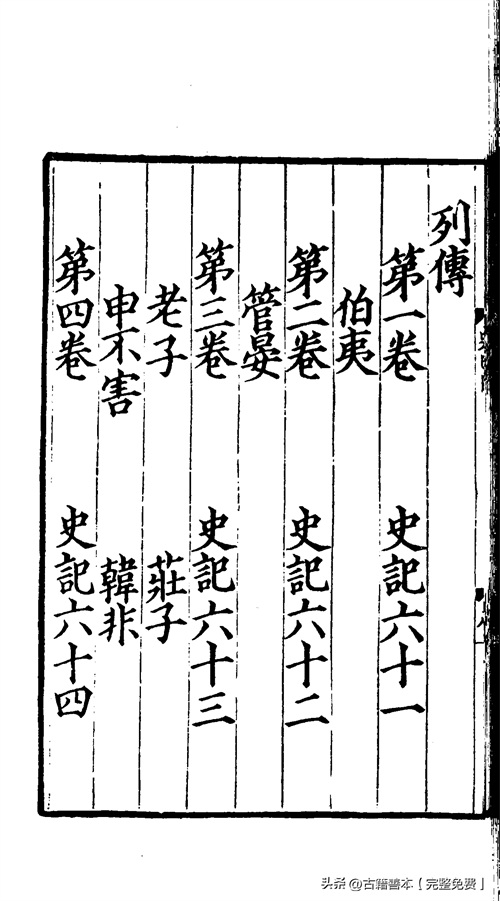 列傳
第一卷 史記六十一
伯夷
第二卷 史記六十二
管晏
第三卷 史記六十三
老子 莊子
申不害 韓非
第四卷 史記六十四
头条 @古籍善本【完整免费】